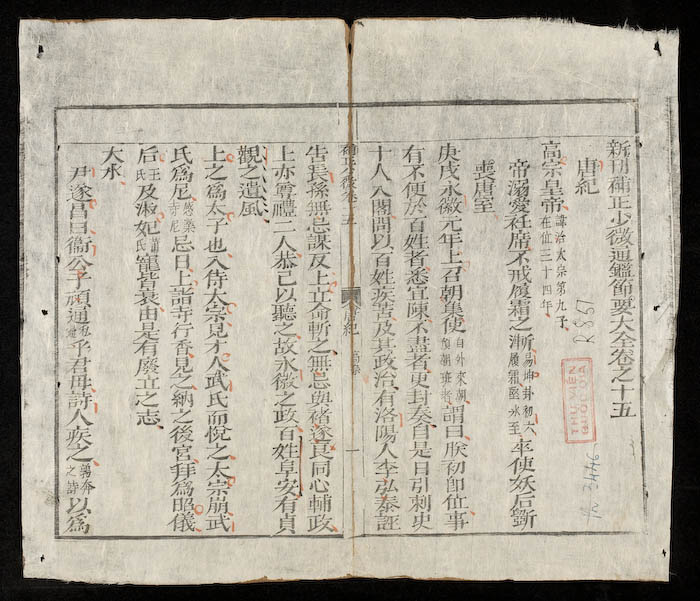 新刊補正少微通鑑節要大全卷之十五
唐紀
高宗皇帝諱治太宗第九子在位三十四年
帝溺愛衽席不戒履霜之漸易坤卦初六履霜堅氷至卒使妖后斲
喪唐室
庚戌永徽元年上召朝集使自外來朝預朝班者謂曰朕初即位事
有不便於百姓者悉宜陳不盡者更封奏自是日引刺史
十人入閤問以百姓疾苦及其政治有洛陽人李弘泰誣
補正少微卷十五
唐紀
高宗
一
告長孫無忌謀反上立命斬之無忌與褚遂良同心輔政
上亦尊禮二人恭己以聽之故永徽之政百姓阜安有貞
觀之遺風
上之爲太子也入侍太宗見才人武氏而悅之太宗崩武
氏爲尼感業寺尼忌日上詣寺行香見之納之後宮拜爲昭儀
后王氏及淑妃蕭氏寵皆衰由是有廢立之志
大水
尹遂昌曰衞公子頑通乎君母詩人疾之鶉奔之詩以爲
R 857
THU-MEN
BIBLIOTEK